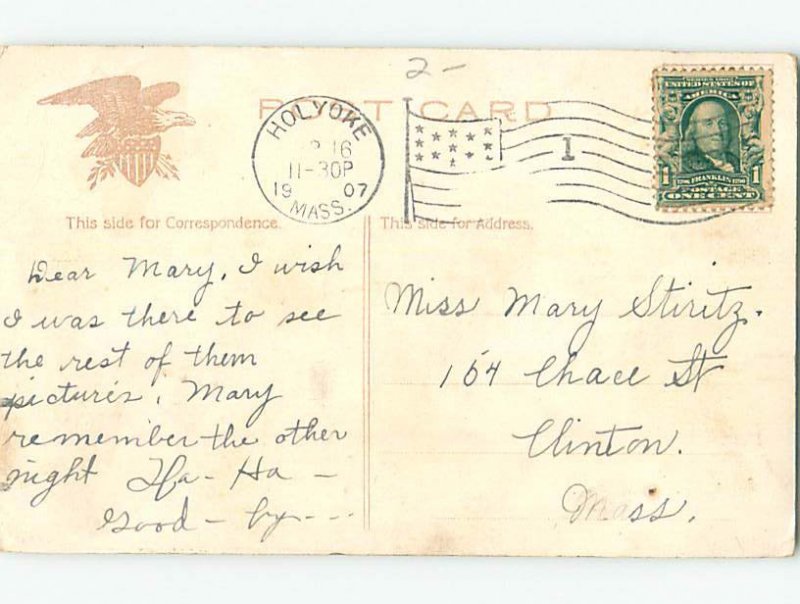 2-
POST CARD
HOLYOKE
16
11-30P
1907
MASS.
1
SERIES 1902
UNITED STATES OF
AMERICA
FRANKLIN
1 POSTAGE 1
ONE CENT
This side for Correspondence.
This side for Address.
Dear Mary, I wish
I was there to see
the rest of them
pictures, Mary
remember the other
night Ha-Ha-
Good-by---
Miss Mary Stiritz.
164 Chace St
Clinton.
Mass.